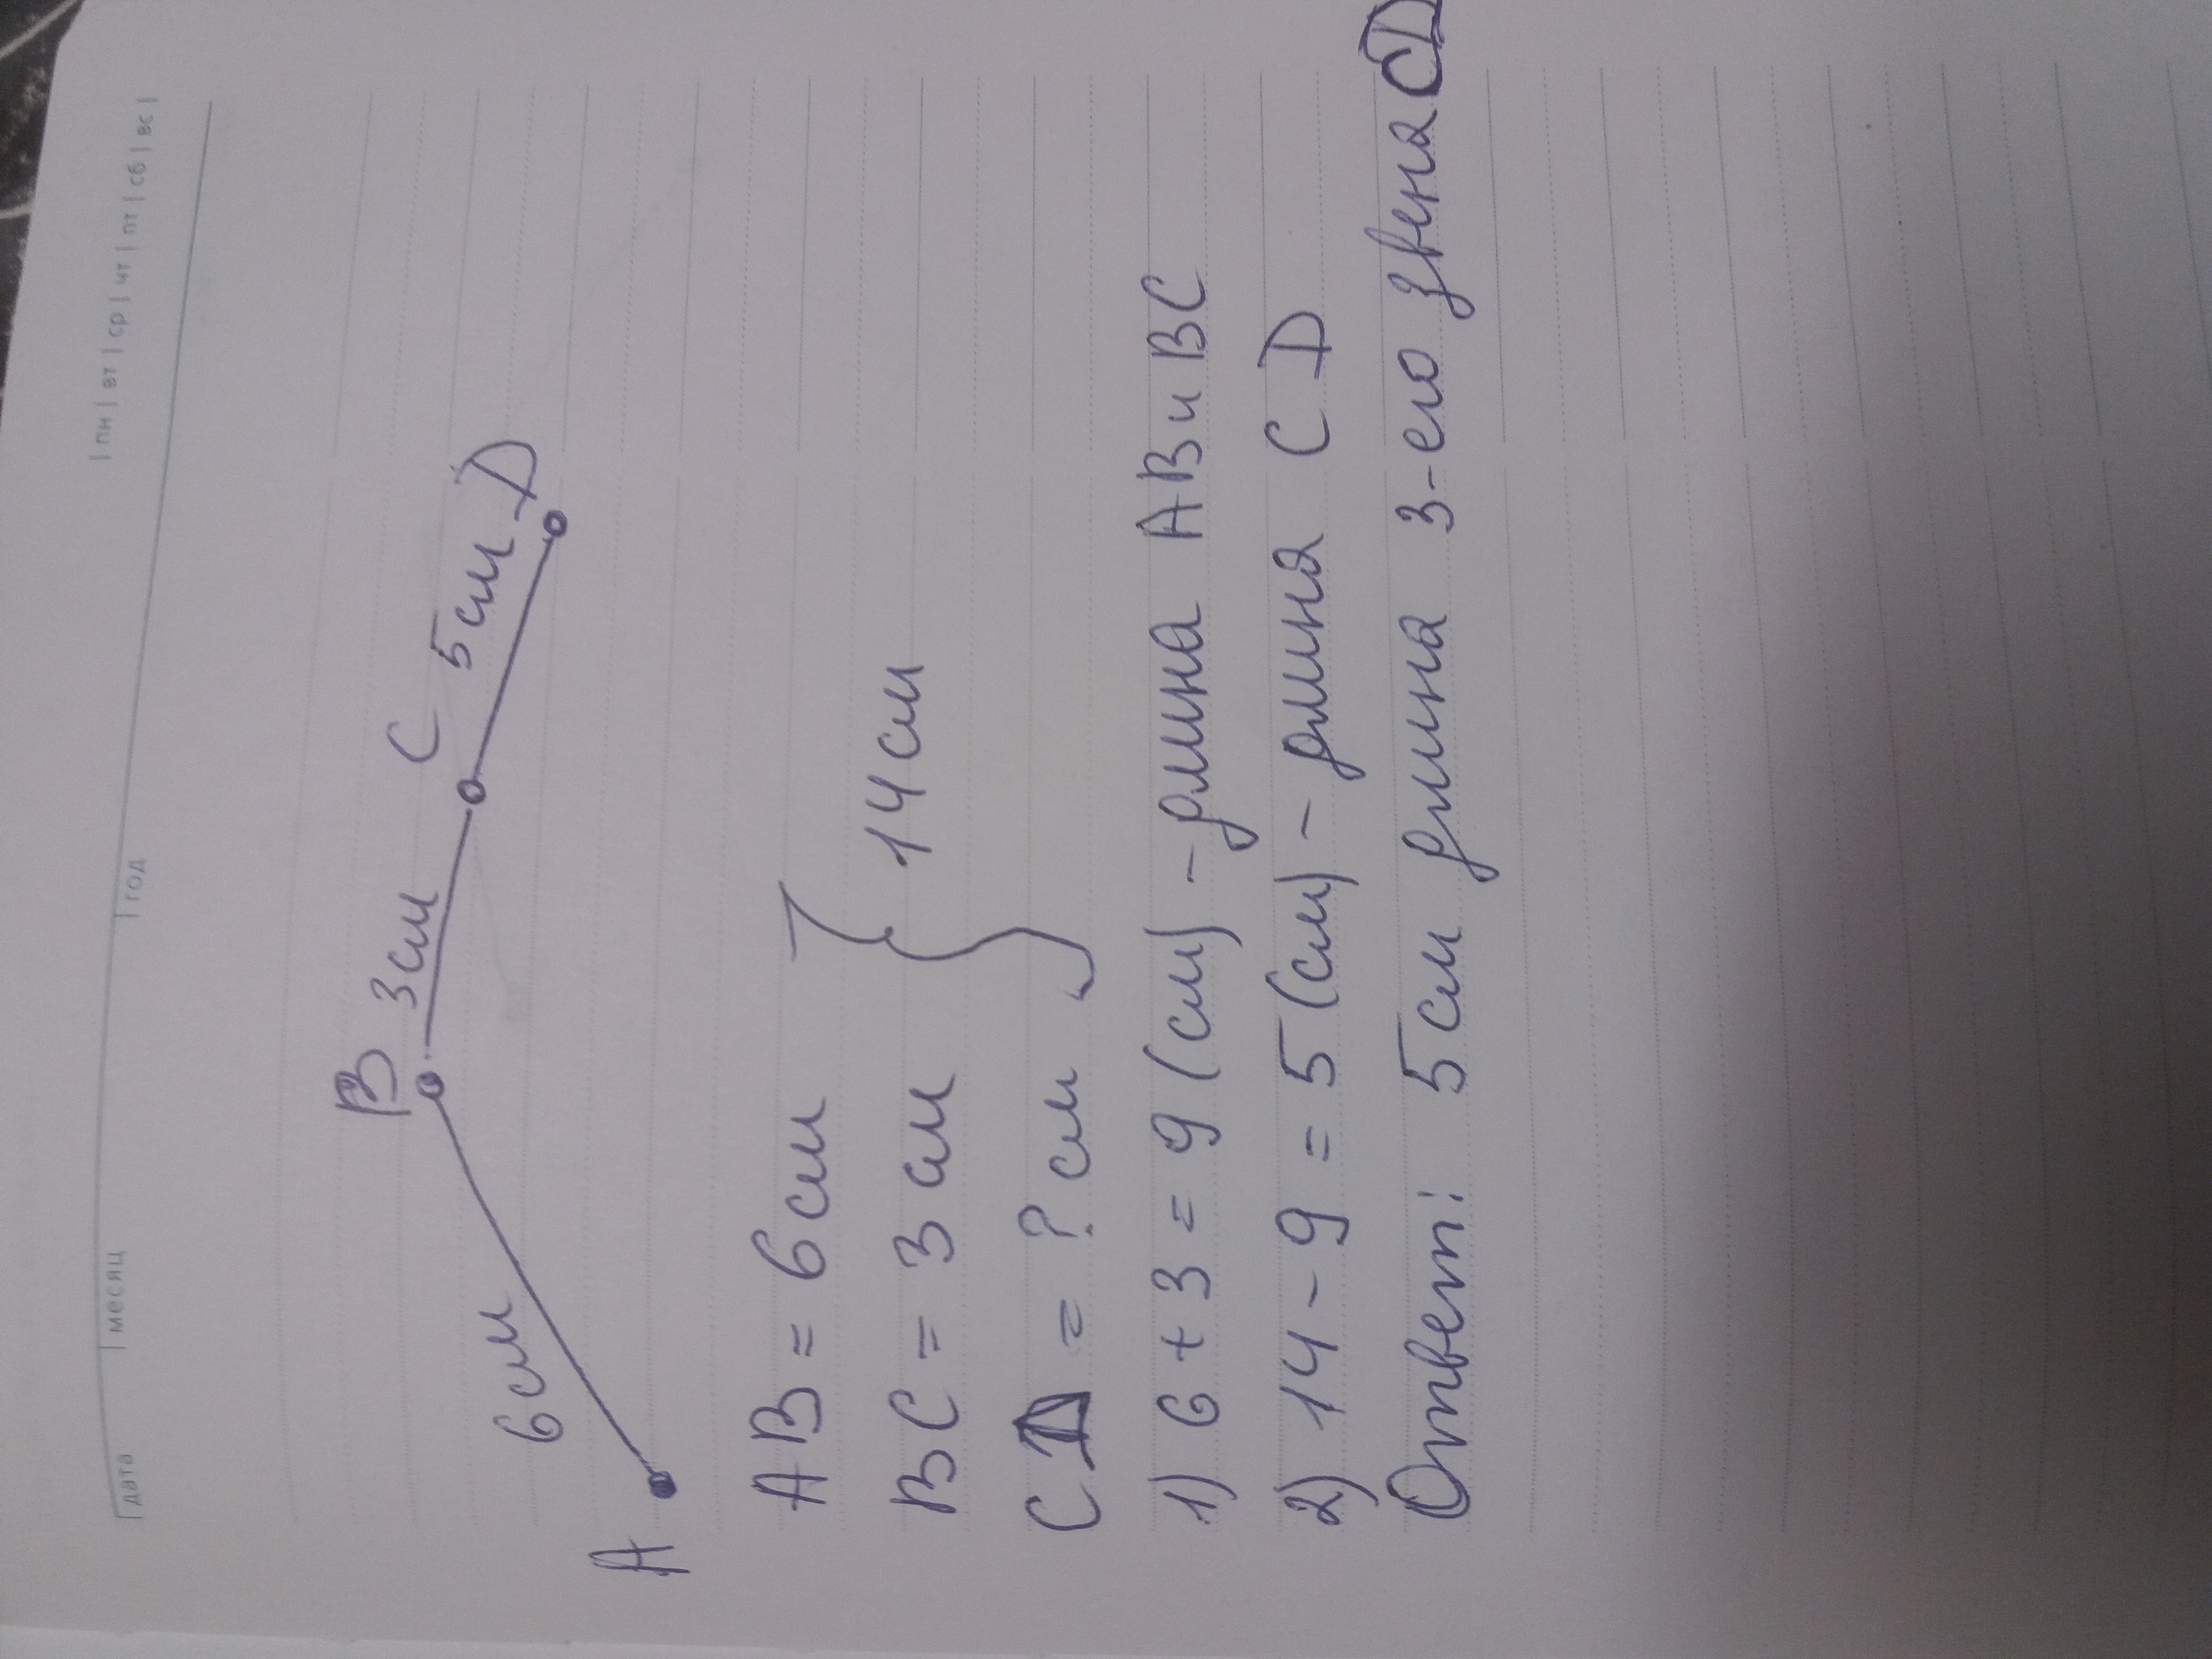 дата | месяц | год | пн | вт | ср | чт | пт | сб | вс |
B 3см C 5см D
6см
A
AB = 6см
BC = 3см } 14см
CD = ? см
1) 6 + 3 = 9 (см) - длина AB и BC
2) 14 - 9 = 5 (см) - длина CD
Ответ: 5см длина 3-его звена CD